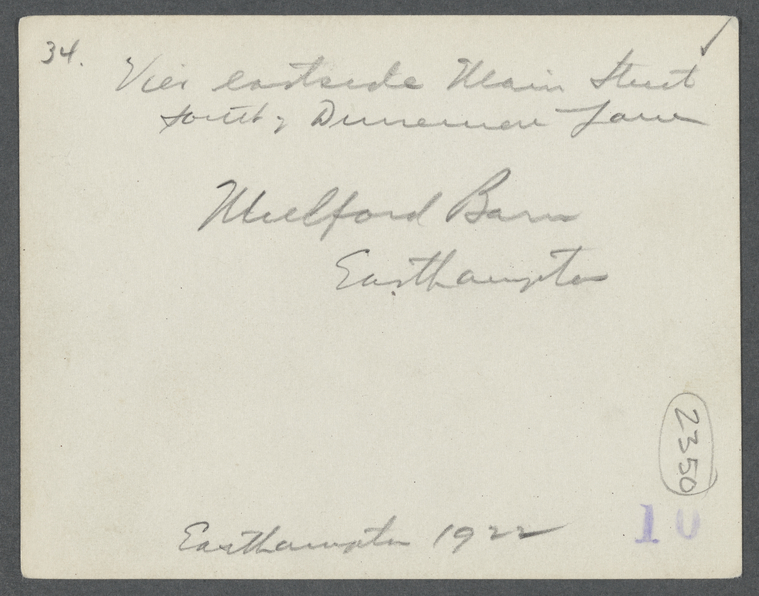 34.
View eastside Main Street
south of Dunemere Lane
Mulford Barn
Easthampton
2350
10
Easthampton 1922